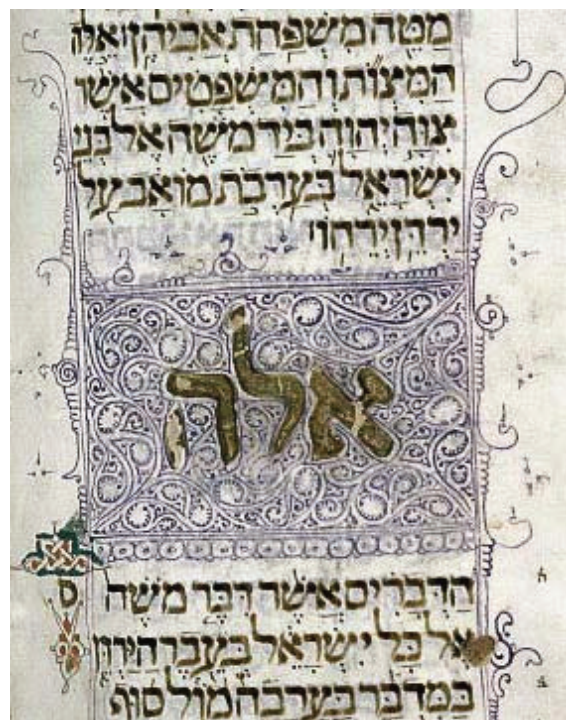 מַטֵּה מִשְׁפַּחַת אֲבִיהֶן אֵלֶּה
הַמִּצְוֹת וְהַמִּשְׁפָּטִים אֲשֶׁר
צִוָּה יְהוָה בְּיַד מֹשֶׁה אֶל בְּנֵי
יִשְׂרָאֵל בְּעַרְבֹת מוֹאָב עַל
יַרְדֵּן יְרֵחוֹ
אלה
הַדְּבָרִים אֲשֶׁר דִּבֶּר מֹשֶׁה
אֶל כָּל יִשְׂרָאֵל בְּעֵבֶר הַיַּרְדֵּן
בַּמִּדְבָּר בָּעֲרָבָה מוֹל סוּף